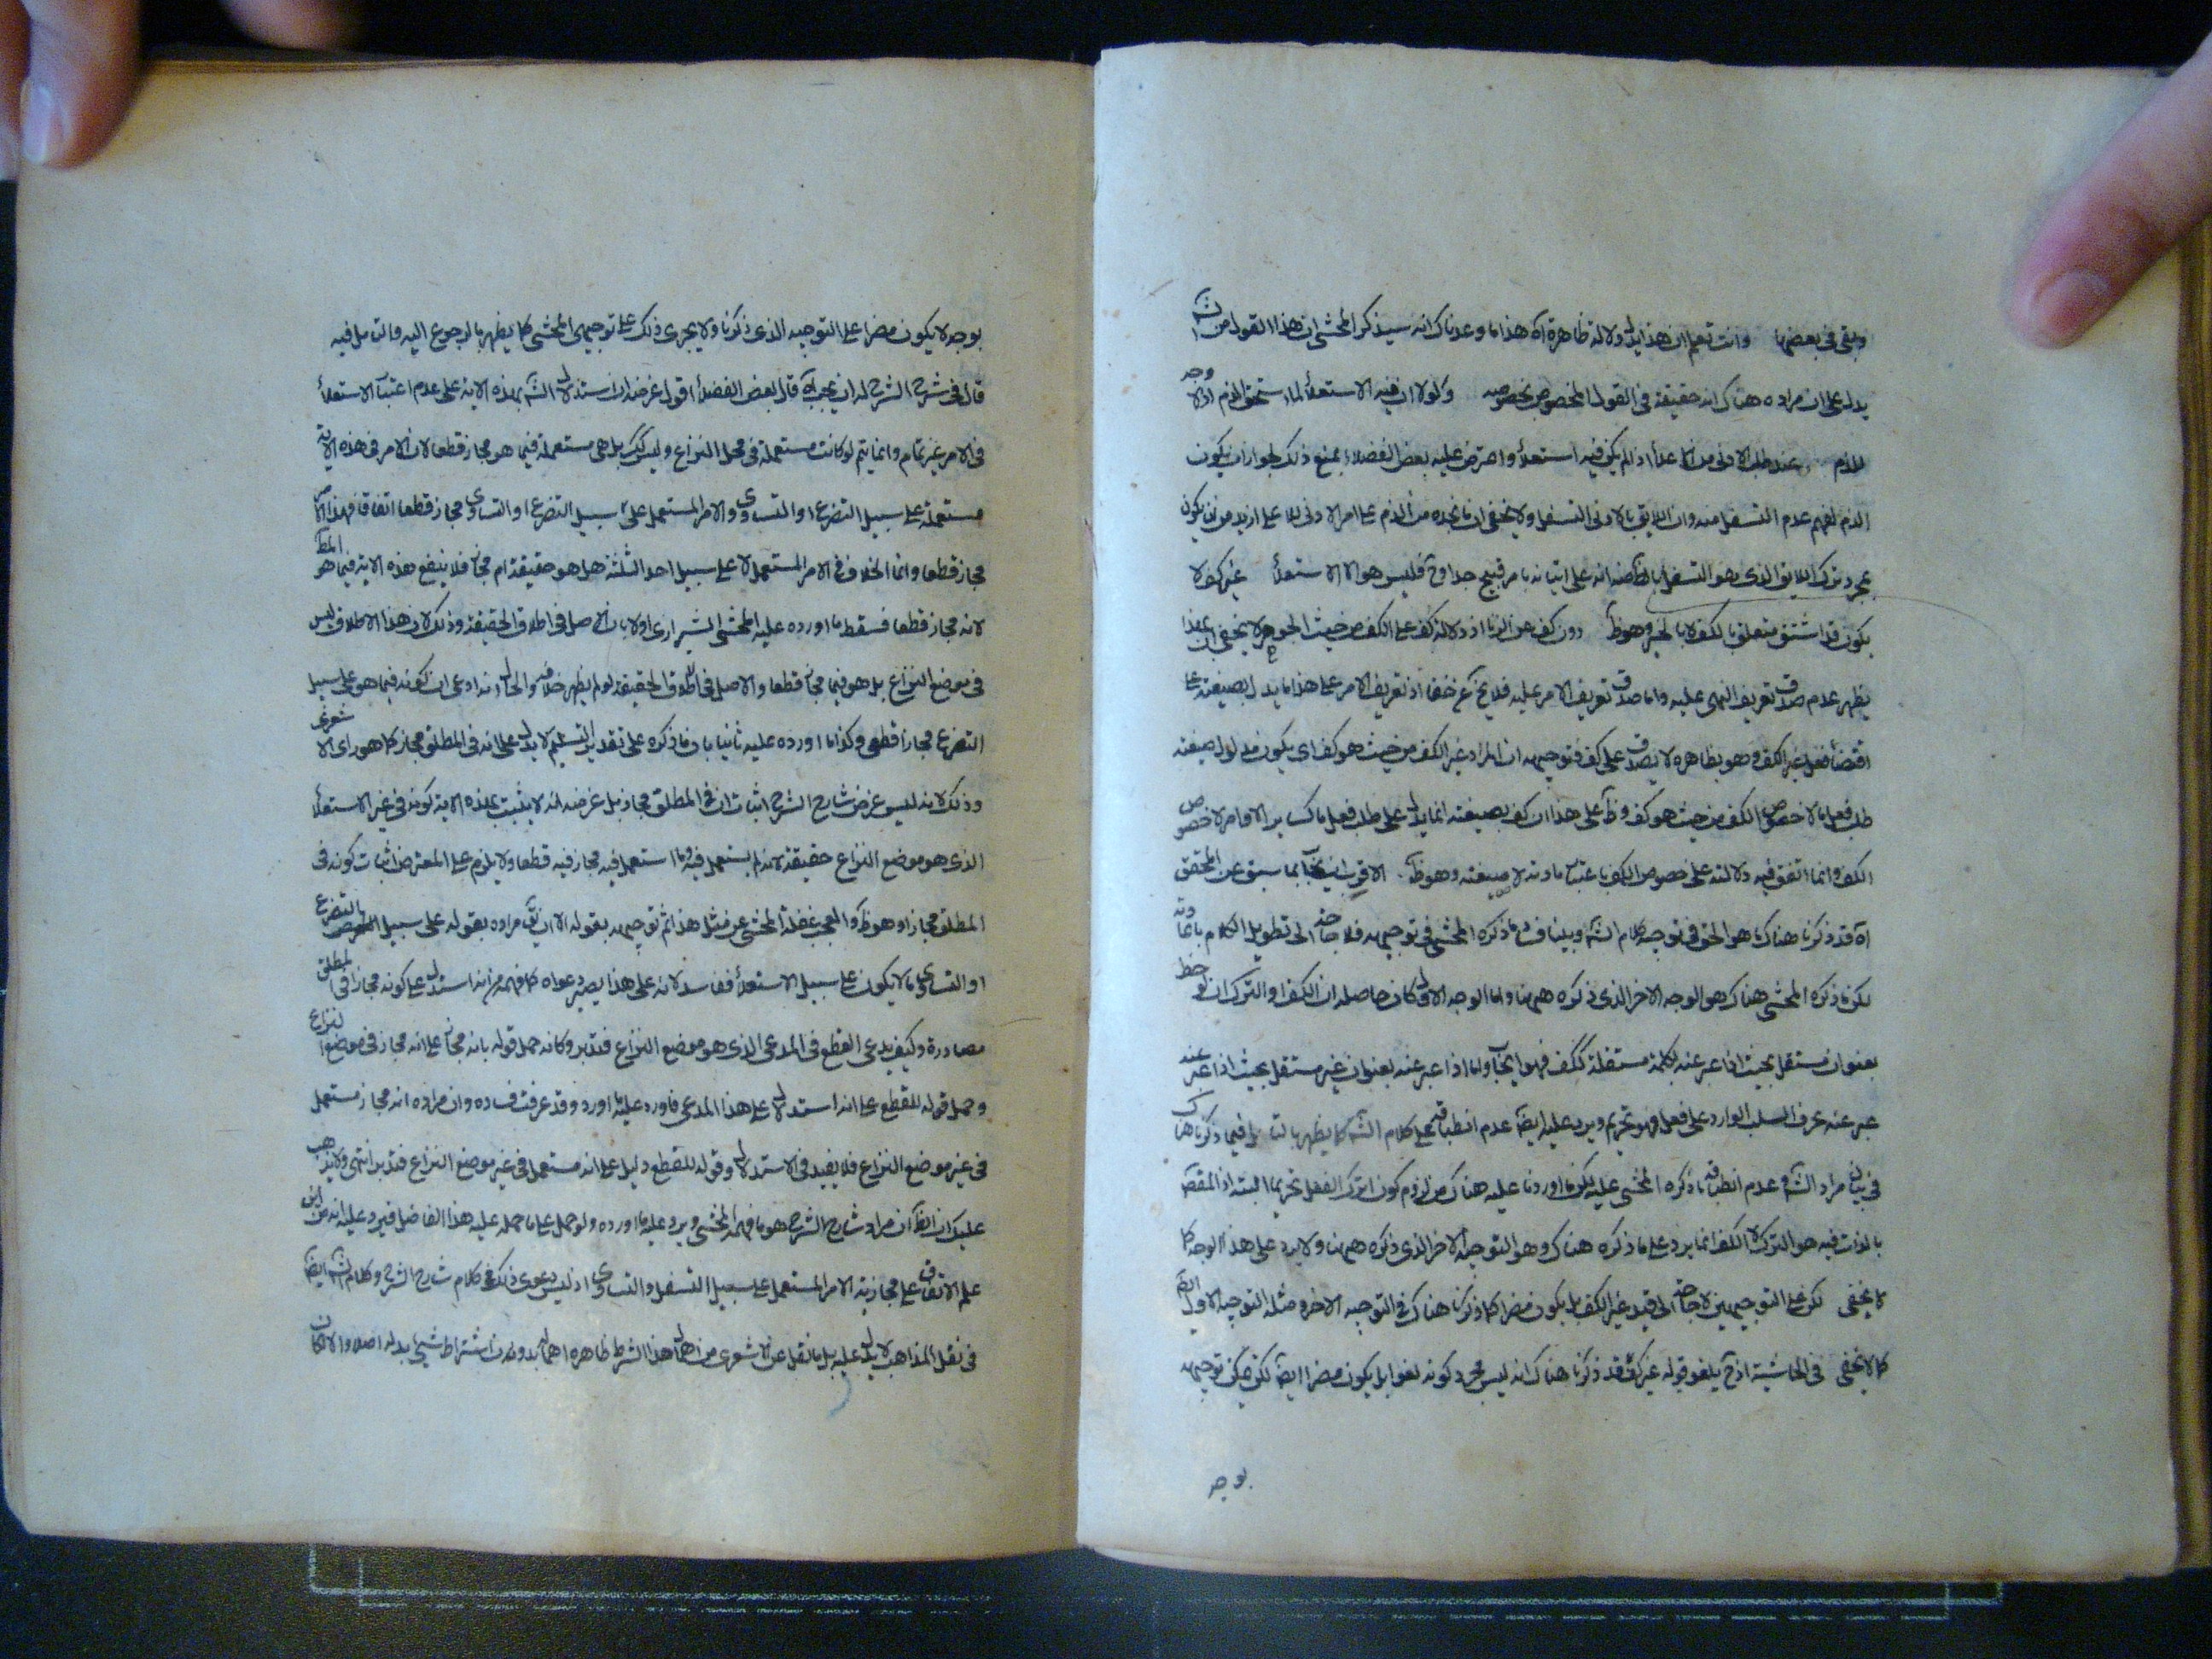 وبقى فى بعضها وانت تعلم ان هذا يدل دلالة ظاهرة اه هذا ما وعدناك انه سيذكر المحشى ان هذا القول من الشه
يدل على ان مراده هناك انه حقيقة فى القول المخصوص بخصوصه ولولا ان فيه الاستعلأ لما استحق الذم اذ لا وجه
للذم عند طلب الادنى من الاعلأ اذا لم يكن فيه استعلأ واعترض عليه بعض الفضلاء بمنع ذلك لجواز ان يكون
الذم لفهم عدم التسفل منه وان اللايق بالادنى التسفل ولا يخفى ان ما نجده من الذم على امر الادنى للاعلى ازيد من ان يكون
بمجرد ترك اللايق الذى هو التسفل بل الظ منه انه على اتيانه بامر قبيح جدا وح فليس هو الا الاستعلأ غير كف لا
يكون قد اشتق متعلق بالكف لا بالغير وهو ظ دون كف عن الزنا اذ دلالة كف على الكف من حيث الجوهر لا يخفى ان بهذا
يظهر عدم صدق تعريف النهى عليه واما صدق تعريف الامر عليه فلا يخ عن خفأ اذ تعريف الامر على هذا ما يدل بصيغته على
اقتضأ فعل غير الكف وهو بظاهره لا يصدق على كف فتوجيهه ان المراد غير الكف من حيث هو كف اى يكون مدلول صيغته
طلب فعل ما لا خصوص الكف من حيث هو كف وظ على هذا ان كف بصيغته انما يدل على طلب فعل ما كساير الاوامر لا خصوص
الكف وانما اتفق فيه دلالته على خصوص الكف باعتبار مادته لا صيغته وهو ظ الاقرب ان يجاب بما سبق عن المحقق
اه قد ذكرنا هناك ما هو الحق فى توجيه كلام الشه وبينا فساد ما ذكره المحشى فى توجيهه فلا حاجة الى تطويل الكلام باعادته
لكن ما ذكره المحشى هناك هو الوجه الاخر الذى ذكره ههنا واما الوجه الاول فكان حاصله ان الكف او الترك ان لوحظ
بعنوان مستقل بحيث اذا عبر عنه بكلمة مستقلة ككف فهو ايجاب واما اذا عبر عنه بعنوان غير مستقل بحيث اذا عبر عنه
عبر عنه بحرف السلب الوارد على فعل فهو تحريم ويرد عليه ايضا عدم انطباقه على كلام الشه كما يظهر بالتامل فيما ذكرنا هناك
فى بيان مراد الشه وعدم انطباق ما ذكره المحشى عليه لكن ما اوردنا عليه هناك من لزوم كون اترك الفعل تحريما البتة اذ المقص
بالذات فيه هو الترك لا الكف انما يرد على ما ذكره هناك وهو التوجيه الاخر الذى ذكره ههنا ولا يرد على هذا الوجه كما
لا يخفى لكن على التوجيهين لا حاجة الى قيد غير الكف بل يكون مضرا كما ذكرنا هناك فى التوجيه الاخر ومثله التوجيه الاول ايضا
كما لا يخفى فى الحاشية اذ ح يلغو قوله غير كف قد ذكرنا هناك انه ليس مجرد كونه لغوا بل يكون مضرا ايضا لكن يمكن توجيهه
بوجه
بوجه لا يكون مضرا على التوجيه الذى ذكرنا ولا يجرى ذلك على توجيهى المحشى كما يظهر بالرجوع اليه والتامل فيه
قال فى شرح الشرح له ان يجيب اه قال بعض الفضلأ اقول غرضه ان استدلال الشه بهذه الاية على عدم اعتبار الاستعلأ
فى الامر غير تمام وانما يتم لو كانت مستعملة فى محل النزاع وليس كك بل هى مستعملة فيما هو مجاز قطعا لان الامر فى هذه الاية
مستعملة على سبيل التضرع او التساوى والامر المستعمل على سبيل التضرع او التساوى مجاز قطعا اتفاقا فهذا الامر
مجاز قطعا وانما الخلاف فى الامر المستعمل لا على سبيل احد الثلثة هل هو حقيقة ام مجاز فلا ينفع هذه الاية فيما هو المط
لانه مجاز قطعا فسقط ما اورده عليه المحشى الشيرازى اولا بان الاصل فى اطلاق الحقيقة وذلك لان هذا الاطلاق ليس
فى موضع النزاع بل هو فيما مجاز قطعا والاصل فى اطلاق الحقيقة لو لم يظهر خلافه والحال انه ادعى ان كونه فيما هو على سبيل
التضرع مجازا قطعى وكذا ما اورده عليه ثانيا بان ما ذكره على تقدير التسليم لا يدل على انه فى المطلق مجاز كما هو راى الاشعرى
وذلك لانه ليس غرض شارح الشرح اثبات ان فى المطلق مجاز بل غرضه انه لا يثبت بهذه الاية كونه فى غير الاستعلأ
الذى هو موضع النزاع حقيقة لانه لم يستعمل فيه وما استعمل فيه مجاز فيه قطعا ولا يلزم على المعترض اثبات كونه فى
المطلق مجازا وهو ظ والعجب غفلة المحشى عن مثل هذا ثم توجيهه بقوله الا ان يق مراده بقوله على سبيل التضرع
او التساوى ما لا يكون على سبيل الاستعلأ ففاسد لانه على هذا يصير دعواه كما فهمه من انه استدل على كونه مجازا فى المطلق
مصادرة وكيف يدعى القطع فى المدعى الذى هو موضع النزاع فتدبر وكانه حمل قوله بانه مجاز على انه مجاز فى موضع النزاع
وحمل قوله للقطع على انه استدلال على هذا المدعى فاورد عليه ما اورد وقد عرفت فساده وان مراده انه مجاز مستعمل
فى غير موضع النزاع فلا يفيد فى الاستدلال وقوله للقطع دليل على انه مستعمل فى غير موضع النزاع فتدبر انتهى ولا يذهب
عليك ان الظ ان مراد شارح الشرح هو ما فهمه المحشى ويرد عليه ما اورده ولو حمل على ما حمله عليه هذا الفاضل فيرد عليه انه من اين
علم الاتفاق على مجازية الامر المستعمل على سبيل التسفل والتساوى اذ ليس دعوى ذلك فى كلام شارح الشرح وكلام الشه ايضا
فى نقل المذاهب لا يدل عليه بل ما نقل عن الاشعرى من اهمال هذا الشرط ظاهره اهماله بدون اشتراط شىء بدله اصلا والا لكان